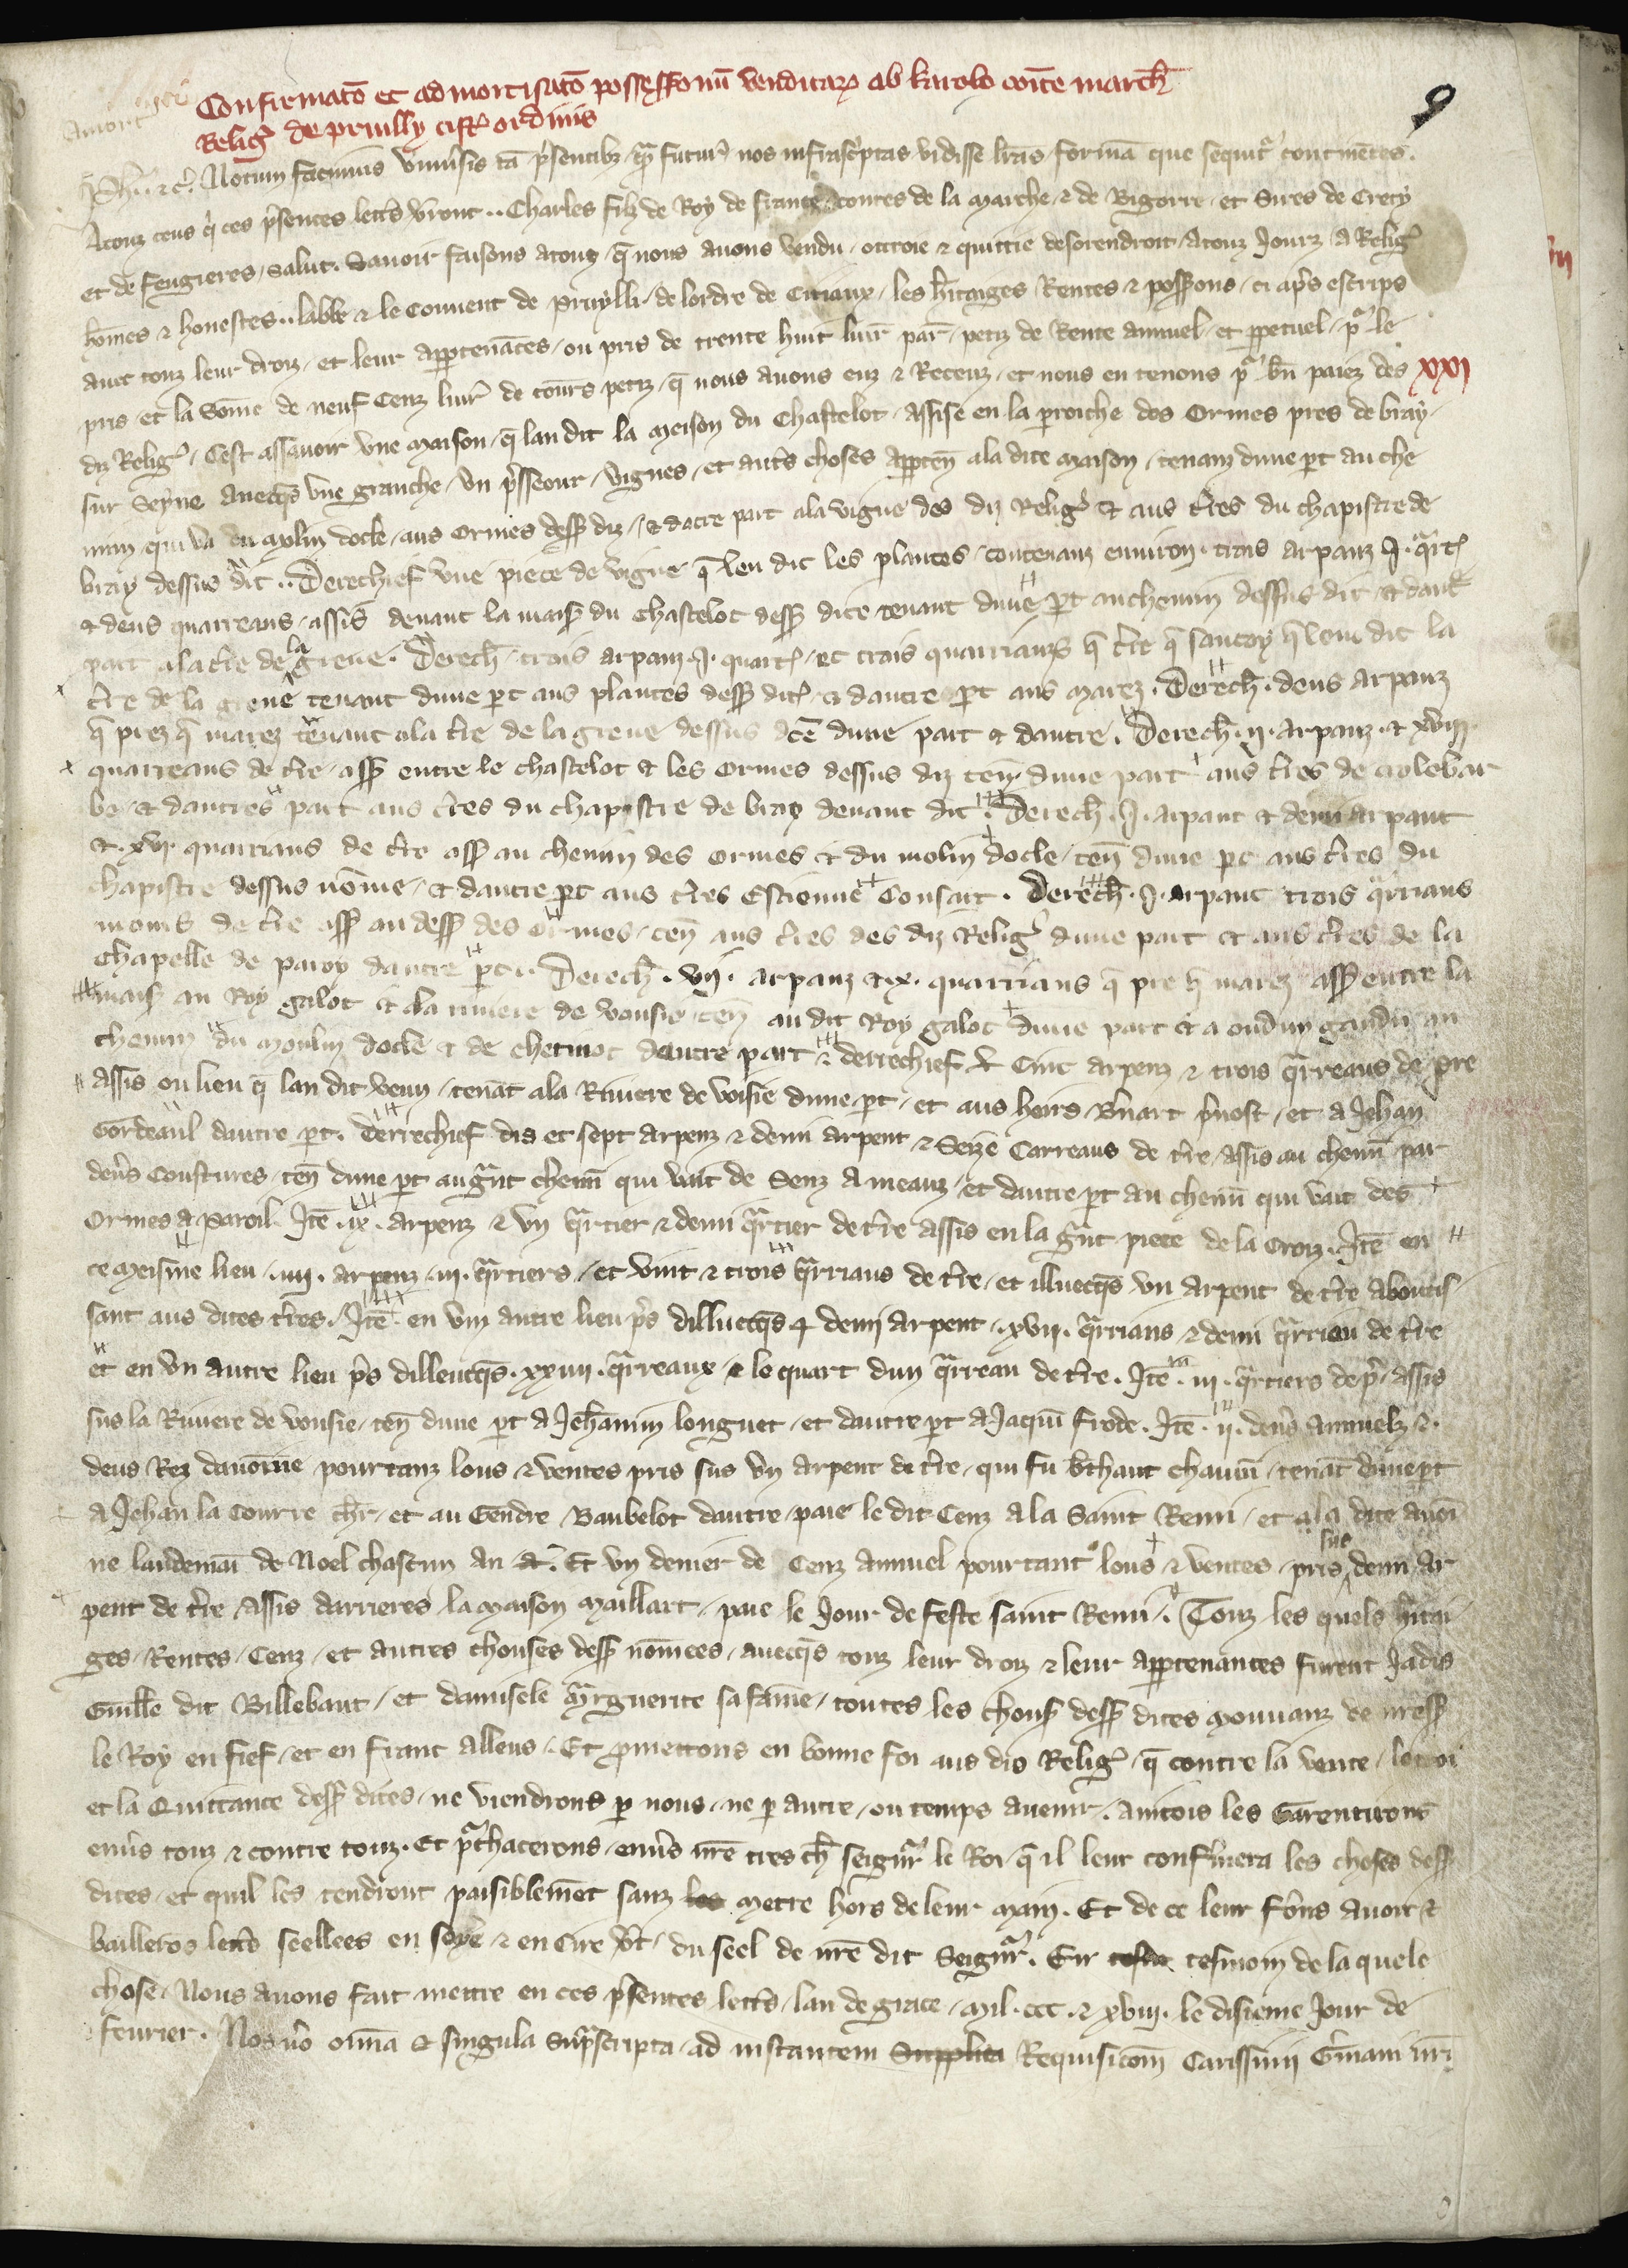 Confirmato et admortisato possessionu venditar ab karolo comite march
Relig de pruilly cist ordinis
9
Amort
Ph. &c. Notum facimus univsis ta psentibz qm futur nos infrascptas vidisse lras formam que sequit continetes.
A touz ceus q ces psentes lettes vront .. Charles filz de Roy de france contes de la Marche & de Bigorre et Sires de Crecy
et de feugieres, salut. Savoir faisons a touz q nous avons vendu, ottroie & quittie desorendroit, a touz Jourz, a Relig
homes & honestes .. labbe & le Couvent de Pruylli de lordre de Citiaux, les hitaiges Rentes & possons, ci aps escrips
avec touz leur droiz, et leur apptenaces, ou pris de trente huit livr par petiz de Rente annuel et ppetuel, p le
pris et la Some de neuf Cenz livr de tours petiz, q nous avons euz & Receuz, et nous en tenons p bn paiez des
XXI
diz Relig, Cest assavoir une Maison, q lan dit la Meison du Chastelot, assise en la proiche des Ormes pres de bray
sur Seyne avecqs une granche, un psseour, vignes, et auts choses appten a la dite Maison, tenanz dune pt au che
min qui va du Molin docle, aus Ormes dess diz, et dautre part a la vigne des diz Relig et aus tres du chapistre de
bray dessus dit .. Derechief une piece de vigne q len dit les plantes, contenanz environ trois arpanz .I. qrt
et deus quarreaus, assis devant la mais du Chastelot dess dite tenant dune pt au chemin dessus dit et daut
part a la tre de la greve. Derech, trois arpanz .I. quart, et trois quarrianz q tre q saucoy q leni dit la
tre de la greve tenant dune pt aus plantes dess dit, et dautre pt aus Marez. Derech. deus arpanz
q prez q marez tenant a la tre de la greve dessus dce dune part et dautre. Derech .II. arpanz et XVIII
quarreaus de tre, ass entre le chastelot et les Ormes dessus diz ten dune part aus tres de
be, et dautres part aus tres du chapistre de bray devant dit. Derech .I. arpant et demi arpant
et .XVI. quarrians de tre ass au chemin des Ormes et du molin docle, ten dune pt aus tres du
chapistre dessus nome, et dautre pt aus tres Estienne Consart. Derech .I. arpant trois qrrians
moins de tre ass au dess des Ormes, ten aus tres des diz Relig dune part et aus tres de la
Chapelle de paroy dautre pt .. Derech .VII. arpanz et .X. quarrians q pre q marez ass entre la
mais au Roy galot et a la riviere de vousie, ten au dit Roy galot dune part et a oudin gaudin au
chemin du Moulin docle et de chetinot dautre part & derrechief & Cinc arpenz & trois qrreaus de pre
assis ou lieu q lan dit veuy, tenat a la Riviere de voisie dune pt, et aus heirs Bnart pvost, et a Jehan
Cordeaul dautre pt. Derrechief dis et sept arpenz & demi arpent & Seize Carreaus de tre, assis au chemin par
devs Coustures, ten dune pt au grant chemin qui vait de Senz a Meauz, et dautre pt au chemin qui vait des
Ormes a Paroil. Ite .IX. arpenz & un qrtier & demi qrtier de tre assis en la grant piece de la Croiz. Ite en
ce Meisme lieu .IIII. arpenz .III. qrtiers, et vint & trois qrrians de tre, et illuecqs un arpent de tre aboutis
sant aus dites tres. Ite en un autre lieu ps dilluecqs demi arpent .XVII. qrrians & demi qrrian de tre
et en un autre lieu ps dilleucqs .XXIIII. qrreaux, & le quart dun qrreau de tre. Ite .III. qrtiers de pr, assis
sus la Riviere de vousie, ten dune pt a Jehannin longuet, et dautre pt a Jaquin frode. Ite .II. devs annuelz &
deus Rez davoine pourtanz lous & ventes pris sus un arpent de tre, qui fu bthaut chauvin, tenat dune pt
a Jehan la Courre chr, et au Gendre Baubelot dautre, paie le dit Cenz a la Saint Remi, et a la dite avoi
ne landemai de Noel chascun an. Et un denier de Cenz annuel pourtant lous & ventes, pris sus demi ar
pent de tre assis darrieres la Maison Maillart, paie le Jour de feste saint Remi. Touz les quels hitai
ges, Rentes, Cenz, et autres chouses dess nomees, avecqs touz leur droiz & leur apptenances furent Jadis
Guille dit Billebaut, et damisele Marguerite sa fame, toutes les chous dess dites Mouvanz de nress
le Roy en fief, et en franc alleus. Et pmettons en bonne foi aus dis Relig, q contre la vente, lottroi
et la Quittance dess dites, ne viendrons p nous, ne p autre, ou temps avenir, aincois les Garentirons
envs touz & contre touz. Et pchacerons, envs nre tres ch seignr le Roi, q il leur confmera les choses dess
dites, et quil les tendront paisiblemet sanz les Mettre hors de leur Main. Et de ce leur fons avoir &
bailleros lettes scellees en soye & en Cire vt, du seel de nre dit Seignr. En tesmoin de la quele
chose, Nous avons fait mettre en ces psentes lettes, lan de grace, Mil .CCC. & XVIII. le disieme Jour de
fevrier. Nos vo omia et singula supscripta, ad instantem Supplica Requisicom Carissimi Gmani nri